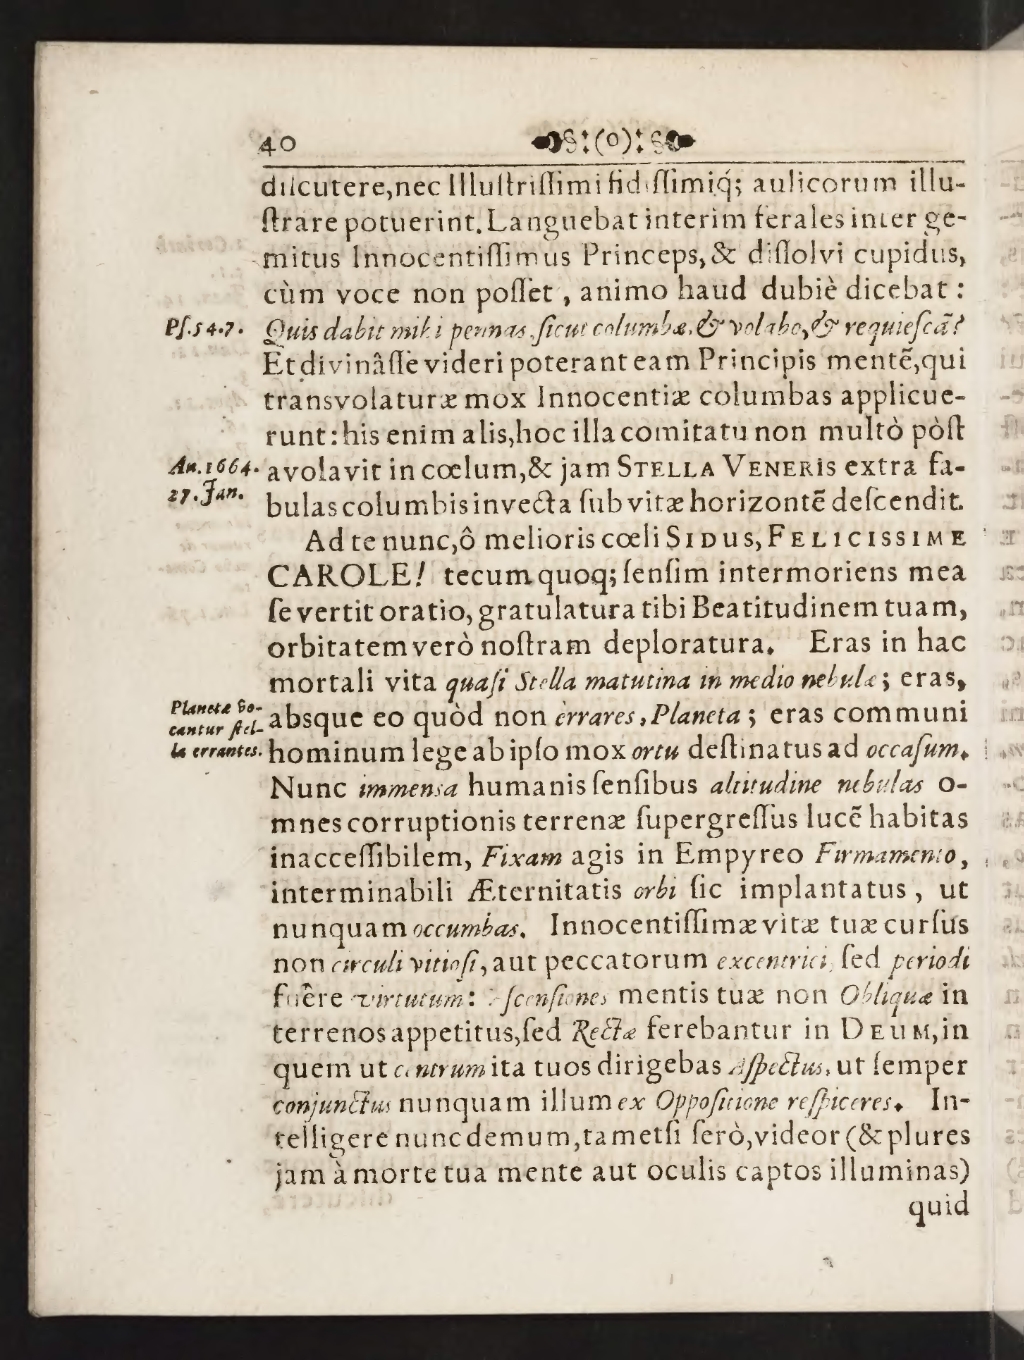 40 §:(o):§
discutere,nec Illustrissimi fidissimiq́; aulicorum illu-
strare potuerint. Languebat interim ferales inter ge-
mitus Innocentissimus Princeps,& dissolvi cupidus,
cùm voce non posset, animo haud dubiè dicebat:
Ps.54.7. Quis dabit mihi pennas sicut columbæ, & volabo, & requiescā?
Et divinâsse videri poterant eam Principis mentē,qui
transvolaturæ mox Innocentiæ columbas applicue-
runt: his enim alis,hoc illa comitatu non multò pòst
An.1664. avolavit in cœlum,& jam STELLA VENERIS extra fa-
27. Jan. bulas columbis invecta sub vitæ horizontē descendit.
Ad te nunc,ô melioris cœli SIDUS, FELICISSIME
CAROLE! tecum quoq; sensim intermoriens mea
se vertit oratio, gratulatura tibi Beatitudinem tuam,
orbitatem verò nostram deploratura. Eras in hac
mortali vita quasi Stella matutina in medio nebulæ; eras,
Planetæ vo- absque eo quòd non errares, Planeta; eras communi
cantur stel-
læ errantes. hominum lege ab ipso mox ortu destinatus ad occasum.
Nunc immensa humanis sensibus altitudine nebulas o-
mnes corruptionis terrenæ supergressus lucē habitas
inaccessibilem, Fixam agis in Empyreo Firmamento,
interminabili Æternitatis orbi sic implantatus, ut
nunquam occumbas. Innocentissimæ vitæ tuæ cursus
non circuli vitiosi, aut peccatorum excentrici, sed periodi
fuêre virtutum: Ascensiones mentis tuæ non Obliquæ in
terrenos appetitus,sed Rectæ ferebantur in DEUM,in
quem ut centrum ita tuos dirigebas Aspectus, ut semper
conjunctus nunquam illum ex Oppositione respiceres. In-
telligere nunc demum,tametsi serò,videor (& plures
jam à morte tua mente aut oculis captos illuminas)
quid